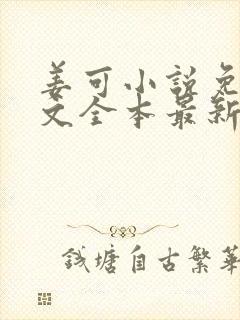 姜可小说免
文全本最新
钱塘自古繁华